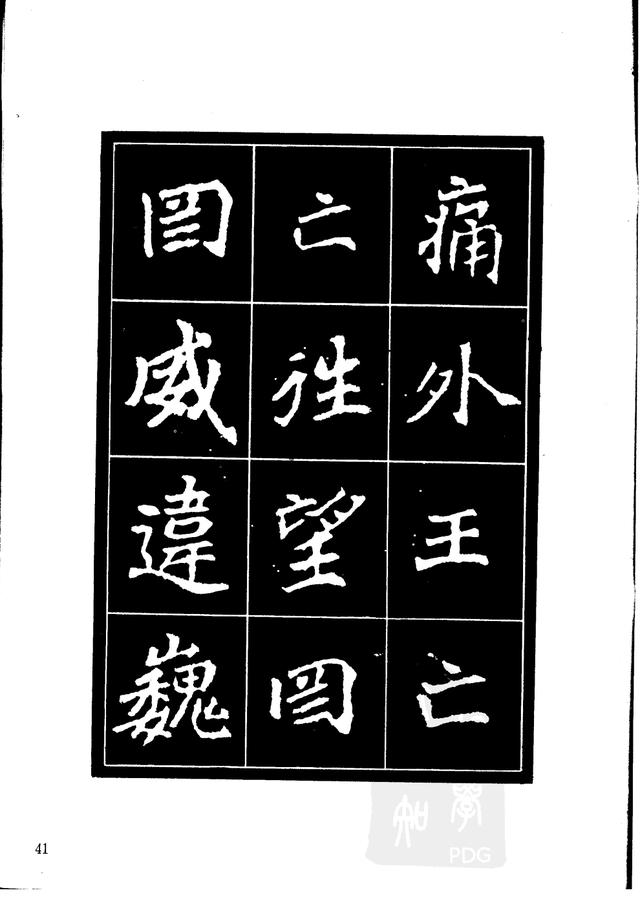 痛外王亡
亡徃望罔
罔威違巍
41
學知
PDG